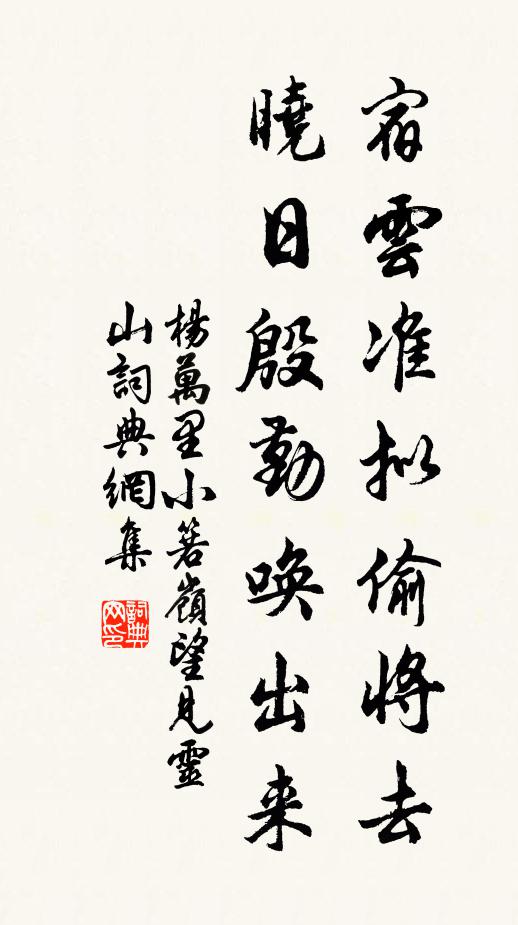 宿雲准拟偷將去
曉日殷勤喚出来
楊萬里小箬嶺望見靈
山詞典網集
詞典网印